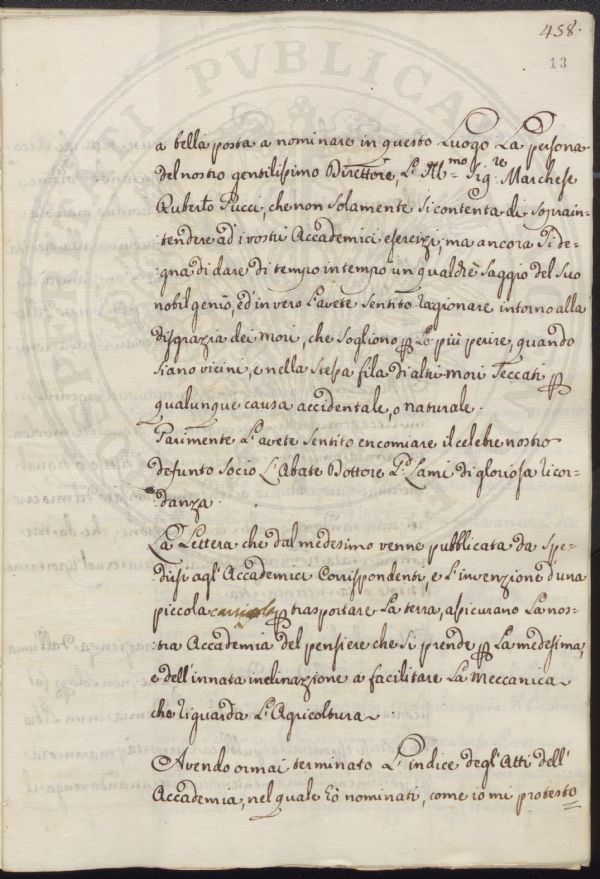 458.
13
a bella posta a nominare in questo Luogo La persona
del nostro gentilissimo Direttore, L'Ill.mo Sig.re Marchese
Ruberto Pucci, che non solamente si contenta di soprain-
:tendere ad' i vostri Accademici esercizj, ma ancora si de-
:gna di dare di tempo in tempo un qualche Saggio del suo
nobil genio, ed' in vero L'avete sentito ragionare intorno alla
disgrazia dei Mori, che sogliono p Lo più perire, quando
siano vicini, e nella stessa fila di altri Mori seccati p
qualunque causa accidentale, o naturale.
Parimente L'avete sentito encomiare il celebre nostro
defunto Socio L'Abate Dottore Lami di gloriosa ricor-
danza.
La Lettera che dal medesimo venne pubblicata da spe-
dirsi agl' Accademici Corrispondenti, e L'invenzione d'una
piccola carriola p trasportare La terra, assicurano La nos-
tra Accademia del pensiere che si prende p La medesima,
e dell' innata inclinazione a facilitare La Meccanica
che riguarda L'Agricoltura.
Avendo ormai terminato L'indice degl' Atti dell'
Accademia, nel quale hò nominati, come io mi protesto
OSPERITATI PVBLICAE